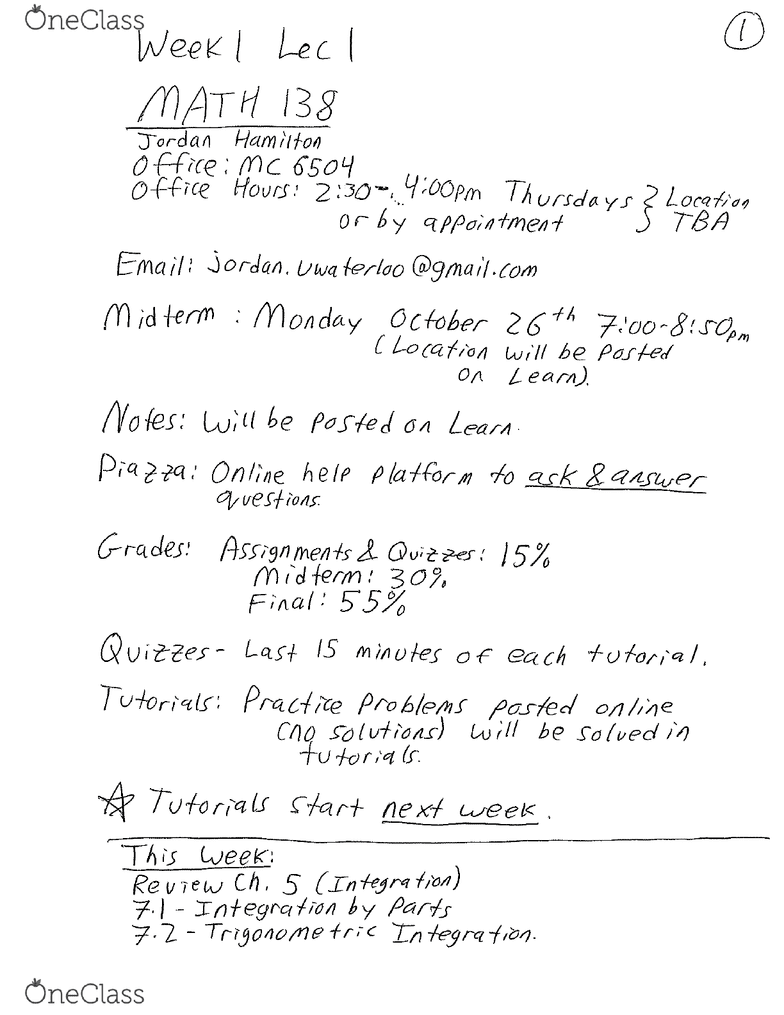 OneClass
Week 1 Lec 1
1
MATH 138
Jordan Hamilton
Office: MC 6504
Office Hours: 2:30-4:00pm Thursdays } Location
or by appointment } TBA
Email: jordan.uwaterloo@gmail.com
Midterm: Monday October 26th 7:00-8:50pm
(Location will be posted
on Learn).
Notes: Will be posted on Learn.
Piazza: Online help platform to ask & answer
questions.
Grades: Assignments & Quizzes: 15%
Midterm: 30%
Final: 55%
Quizzes - Last 15 minutes of each tutorial.
Tutorials: Practice Problems posted online
(no solutions) will be solved in
tutorials.
☆ Tutorials start next week.
This Week:
Review Ch. 5 (Integration)
7.1 - Integration by Parts
7.2 - Trigonometric Integration.
OneClass